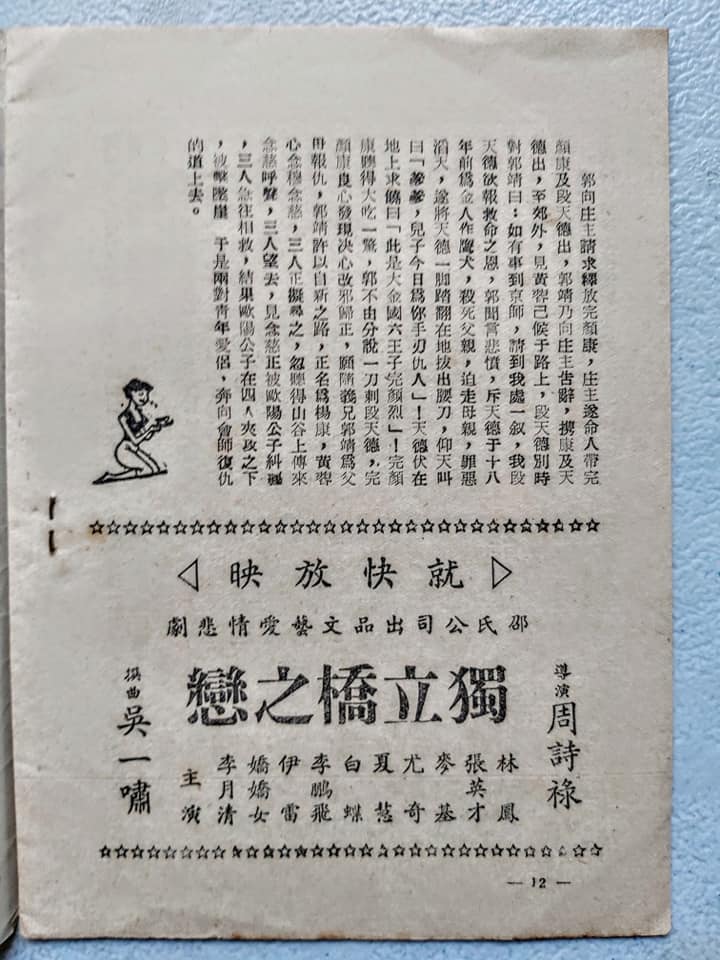 郭向庄主請求釋放完顏康，庄主遂命人帶完
顏康及段天德出，郭靖乃向庄主告辭，携康及天
德出，至郊外，見黃蓉己候于路上，段天德別時
對郭靖曰：如有事到京師，請到我處一叙，我段
天德欲報救命之恩，郭聞言悲憤，斥天德于十八
年前爲金人作鷹犬，殺死父親，迫走母親，罪惡
滔天，遂將天德一脚踏翻在地拔出腰刀，仰天叫
曰「爹爹，兒子今日爲你手刃仇人」！天德伏在
地上求饒曰「此是大金國六王子完顏烈」！完顏
康聽得大吃一驚，郭不由分說一刀刺段天德，完
顏康良心發現决心改邪歸正，願隨義兄郭靖爲父
母報仇，郭靖許以自新之路，正名爲楊康，黃蓉
心念穆念慈，三人正擬尋之，忽聽得山谷上傳來
念慈呼聲，三人望去，見念慈正被歐陽公子糾纏
，三人急往相救，結果歐陽公子在四人夾攻之下
，被擊墜崖　于是兩對青年愛侶，奔向會師復仇
的道上去。
就快放映
邵氏公司出品文藝愛情悲劇
導演 周詩祿
獨立橋之戀
撰曲 吳一嘯
林鳳
張英才
麥基
尤奇
夏慧
白蝶
李鵬飛
伊雷
嬌嬌女
李月清
主演
— 12 —